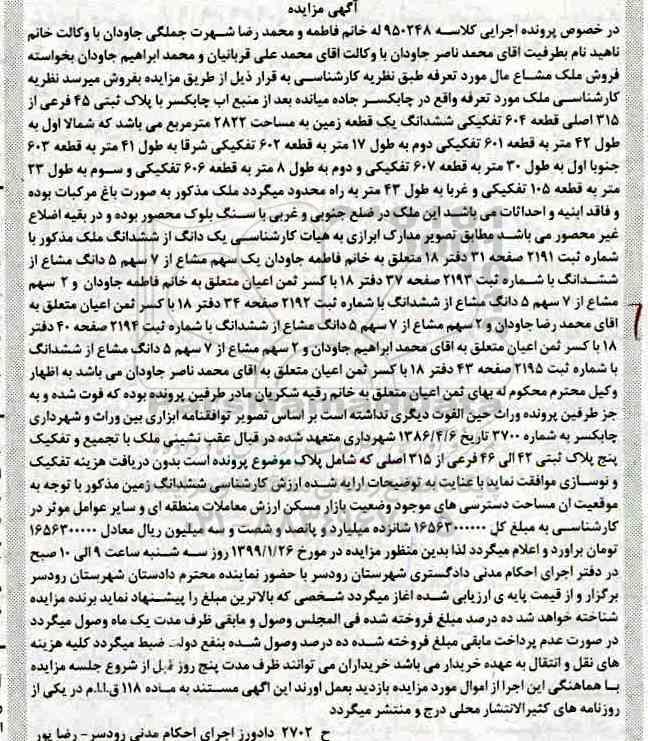 آگهی مزایده
در خصوص پرونده اجرایی کلاسه ۹۵۰۲۴۸ له خانم فاطمه و محمد رضا شهرت جملگی جاودان با وکالت خانم
ناهید نام بطرفیت اقای محمد ناصر جاودان با وکالت اقای محمد علی قربانیان و محمد ابراهیم جاودان بخواسته
فروش ملک مشاع مال مورد تعرفه طبق نظریه کارشناسی به قرار ذیل از طریق مزایده بفروش میرسد نظریه
کارشناسی ملک مورد تعرفه واقع در چابکسر جاده میانده بعد از منبع اب چابکسر با پلاک ثبتی ۴۵ فرعی از
۳۱۵ اصلی قطعه ۶۰۴ تفکیکی ششدانگ یک قطعه زمین به مساحت ۲۸۲۲ مترمربع می باشد که شمالا اول به
طول ۴۲ متر به قطعه ۶۰۱ تفکیکی دوم به طول ۱۷ متر به قطعه ۶۰۲ تفکیکی شرقا به طول ۴۱ متر به قطعه ۶۰۳
جنوبا اول به طول ۳۰ متر به قطعه ۶۰۷ تفکیکی و دوم به طول ۸ متر به قطعه ۶۰۶ تفکیکی و سوم به طول ۲۳
متر به قطعه ۱۰۵ تفکیکی و غربا به طول ۴۳ متر به راه محدود میگردد ملک مذکور به صورت باغ مرکبات بوده
و فاقد ابنیه و احداثات می باشد این ملک در ضلع جنوبی و غربی با سنگ بلوک محصور بوده و در بقیه اضلاع
غیر محصور می باشد مطابق تصویر مدارک ابرازی به هیات کارشناسی یک دانگ از ششدانگ ملک مذکور با
شماره ثبت ۲۱۹۱ صفحه ۳۱ دفتر ۱۸ متعلق به خانم فاطمه جاودان یک سهم مشاع از ۷ سهم ۵ دانگ مشاع از
ششدانگ با شماره ثبت ۲۱۹۳ صفحه ۳۷ دفتر ۱۸ با کسر ثمن اعیان متعلق به خانم فاطمه جاودان و ۲ سهم
مشاع از ۷ سهم ۵ دانگ مشاع از ششدانگ با شماره ثبت ۲۱۹۲ صفحه ۳۴ دفتر ۱۸ با کسر ثمن اعیان متعلق به
اقای محمد رضا جاودان و ۲ سهم مشاع از ۷ سهم ۵ دانگ مشاع از ششدانگ با شماره ثبت ۲۱۹۴ صفحه ۴۰ دفتر
۱۸ با کسر ثمن اعیان متعلق به اقای محمد ابراهیم جاودان و ۲ سهم مشاع از ۷ سهم ۵ دانگ مشاع از ششدانگ
با شماره ثبت ۲۱۹۵ صفحه ۴۳ دفتر ۱۸ با کسر ثمن اعیان متعلق به اقای محمد ناصر جاودان می باشد به اظهار
وکیل محترم محکوم له بهای ثمن اعیان متعلق به خانم رقیه شکریان مادر طرفین پرونده بوده که فوت شده و به
جز طرفین پرونده وراث حین الفوت دیگری نداشته است بر اساس تصویر توافقنامه ابزاری بین وراث و شهرداری
چابکسر به شماره ۳۷۰۰ تاریخ ۱۳۸۶/۴/۶ شهرداری متعهد شده در قبال عقب نشینی ملک با تجمیع و تفکیک
پنج پلاک ثبتی ۴۲ الی ۴۶ فرعی از ۳۱۵ اصلی که شامل پلاک موضوع پرونده است بدون دریافت هزینه تفکیک
و نوسازی موافقت نماید با عنایت به توضیحات ارایه شده ارزش کارشناسی ششدانگ زمین مذکور با توجه به
موقعیت ان مساحت دسترسی های موجود وضعیت بازار مسکن ارزش معاملات منطقه ای و سایر عوامل موثر در
کارشناسی به مبلغ کل ۱۶۵۶۳۰۰۰۰۰۰ شانزده میلیارد و پانصد و شصت و سه میلیون ریال معادل ۱۶۵۶۳۰۰۰۰۰
تومان براورد و اعلام میگردد لذا بدین منظور مزایده در مورخ ۱۳۹۹/۱/۲۶ روز سه شنبه ساعت ۹ الی ۱۰ صبح
در دفتر اجرای احکام مدنی دادگستری شهرستان رودسر با حضور نماینده محترم دادستان شهرستان رودسر
برگزار و از قیمت پایه ی ارزیابی شده اغاز میگردد شخصی که بالاترین مبلغ را پیشنهاد نماید برنده مزایده
شناخته خواهد شد ده درصد مبلغ فروخته شده فی المجلس وصول و مابقی ظرف مدت یک ماه وصول میگردد
در صورت عدم پرداخت مابقی مبلغ فروخته شده ده درصد وصول شده بنفع دولت ضبط میگردد کلیه هزینه
های نقل و انتقال به عهده خریدار می باشد خریداران می توانند ظرف مدت پنج روز قبل از شروع جلسه مزایده
با هماهنگی این اجرا از اموال مورد مزایده بازدید بعمل اورند این اگهی مستند به ماده ۱۱۸ ق.ا.ا.م در یکی از
روزنامه های کثیرالانتشار محلی درج و منتشر میگردد
ح ۲۷۰۲ دادورز اجرای احکام مدنی رودسر- رضا پور